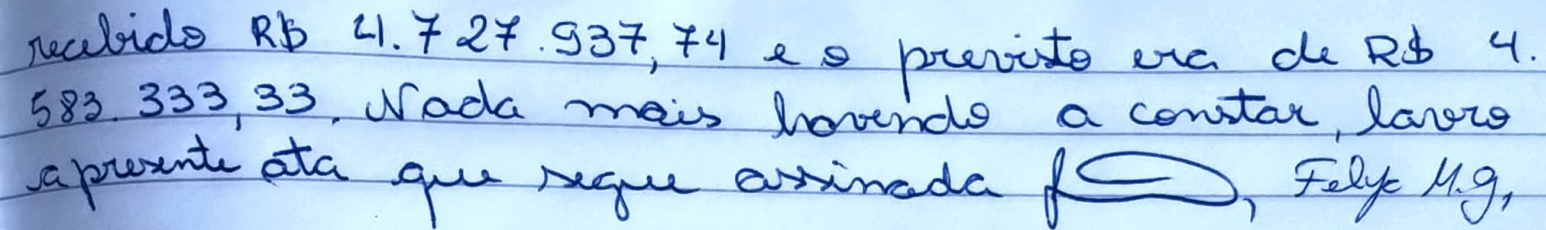 recebido R$ 4.727.937,74 e o previsto era de R$ 4.
583.333,33. Nada mais havendo a constar, lavro
a presente ata que segue assinada